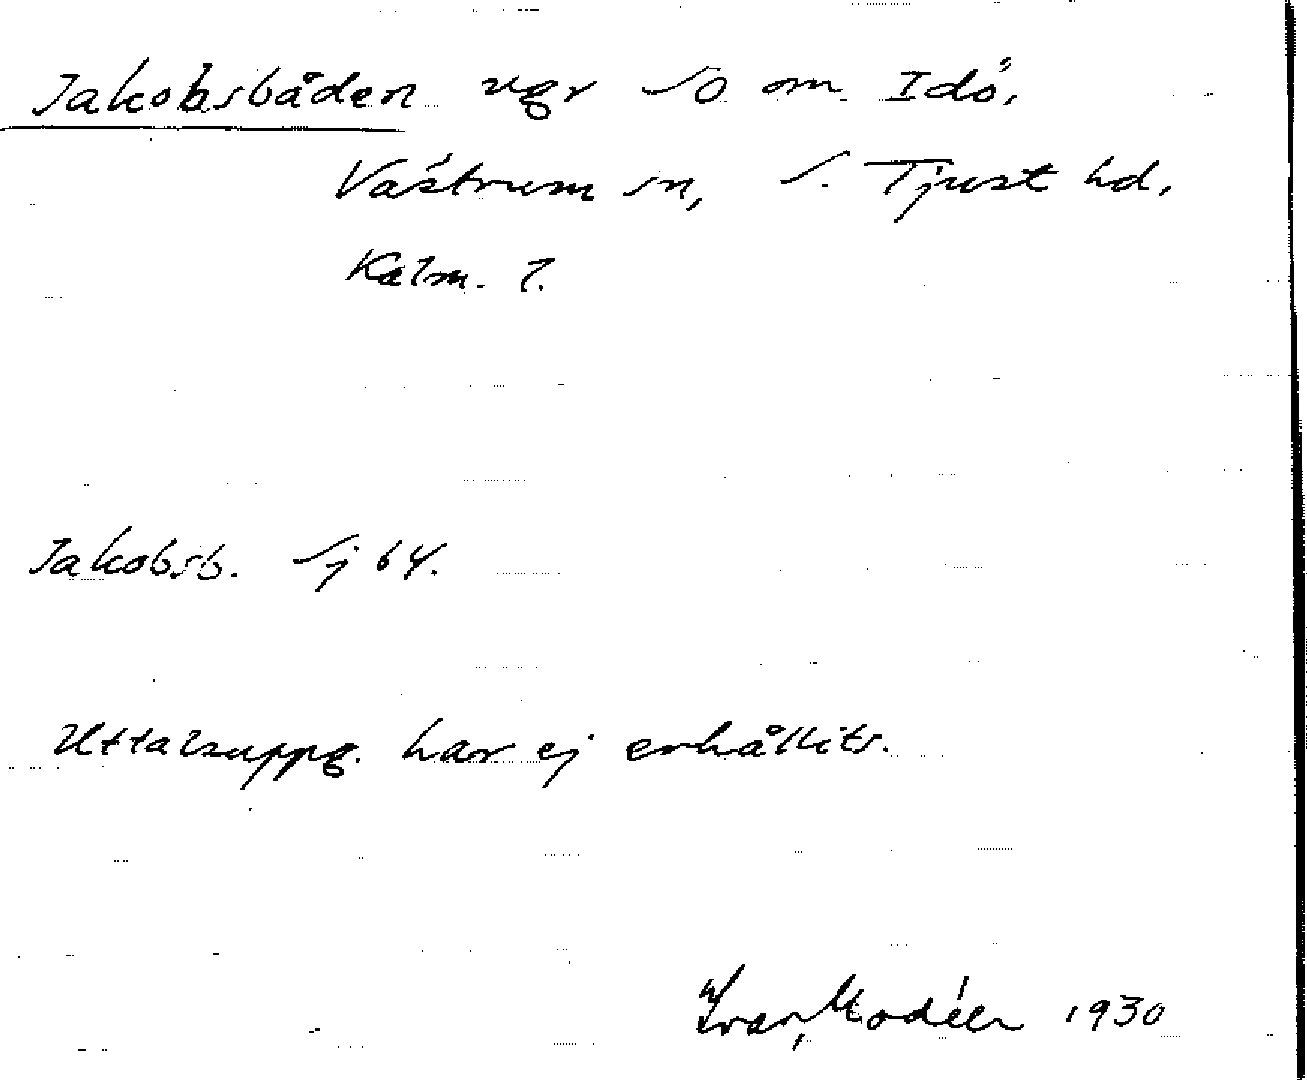 Jakobsbåden ugr SO om Idö,
Västrum sn, S. Tjust hd,
Kalm. l.
Jakobsb. Sj 64.
Uttalsuppg. har ej erhållits.
Ivar Modéer 1930